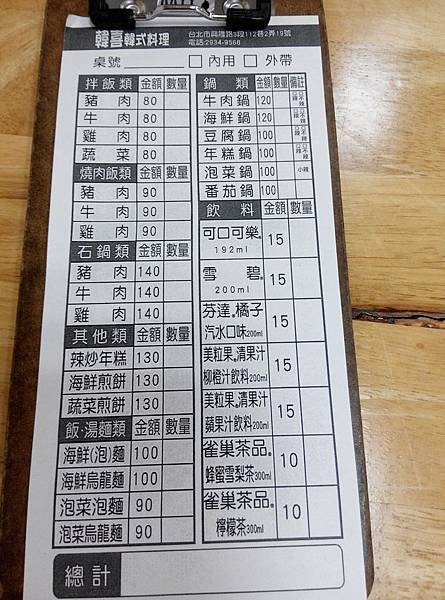 韓喜韓式料理
台北市興隆路3段112巷2弄19號
電話:2934-9568
桌號 □內用 □外帶
拌飯類 金額 數量
豬肉 80
牛肉 80
雞肉 80
蔬菜 80
燒肉飯類 金額 數量
豬肉 90
牛肉 90
雞肉 90
石鍋類 金額 數量
豬肉 140
牛肉 140
雞肉 140
其他類 金額 數量
辣炒年糕 130
海鮮煎餅 130
蔬菜煎餅 130
飯·湯麵類 金額 數量
海鮮(泡)麵 100
海鮮烏龍麵 100
泡菜泡麵 90
泡菜烏龍麵 90
鍋類 金額 數量 備註
牛肉鍋 120 □辣 □不辣
海鮮鍋 120 □辣 □不辣
豆腐鍋 100 □辣 □不辣
年糕鍋 100 □辣 □不辣
泡菜鍋 100 小辣
番茄鍋 100
飲料 金額 數量
可口可樂® 15
192ml
雪碧® 15
200ml
芬達®橘子 15
汽水口味200ml
美粒果®清果汁 15
柳橙汁飲料200ml
美粒果®清果汁 15
蘋果汁飲料200ml
雀巢茶品® 10
蜂蜜雪梨茶300ml
雀巢茶品® 10
檸檬茶300ml
總計